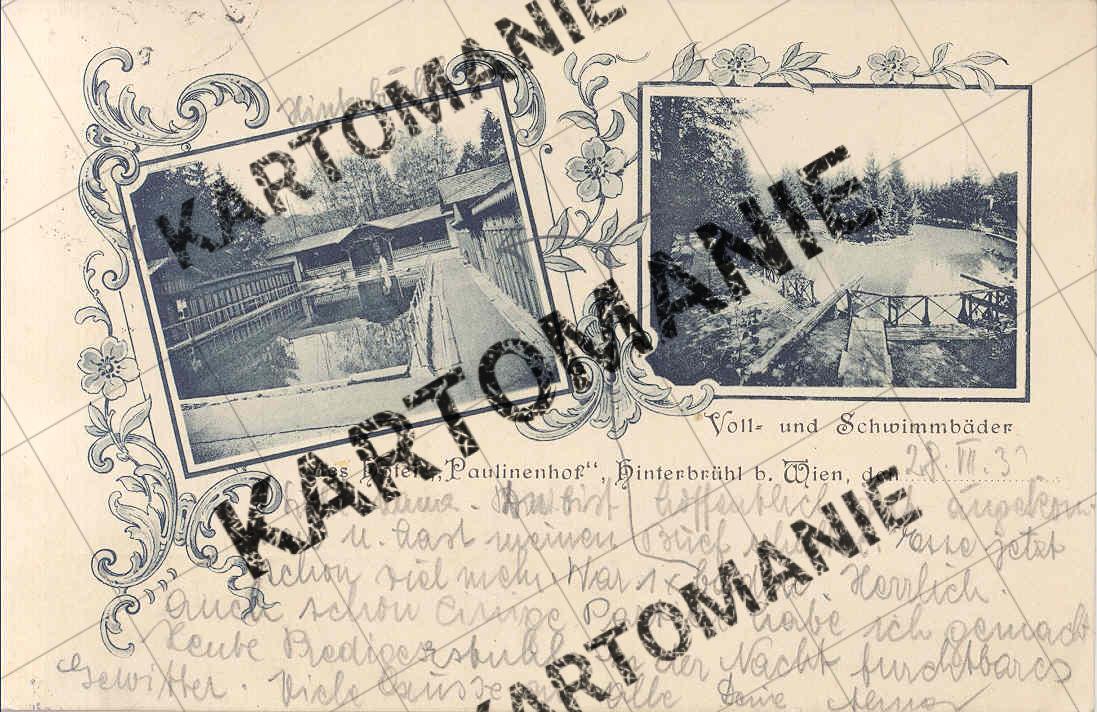 KARTOMANIE
KARTOMANIE
KARTOMANIE
Voll- und Schwimmbäder
des Hotel „Paulinenhof“, Hinterbrühl b. Wien, den 28. VII. 3
Mama. Du bist hoffentlich gut angekom-
u. hast meinen Brief jetzt
schon viel mehr. War Herrlich.
auch schon Einige habe ich gemacht
Heute Predigerstuhl. In der Nacht furchtbares
Gewitter. Viele Küsse an alle Deine